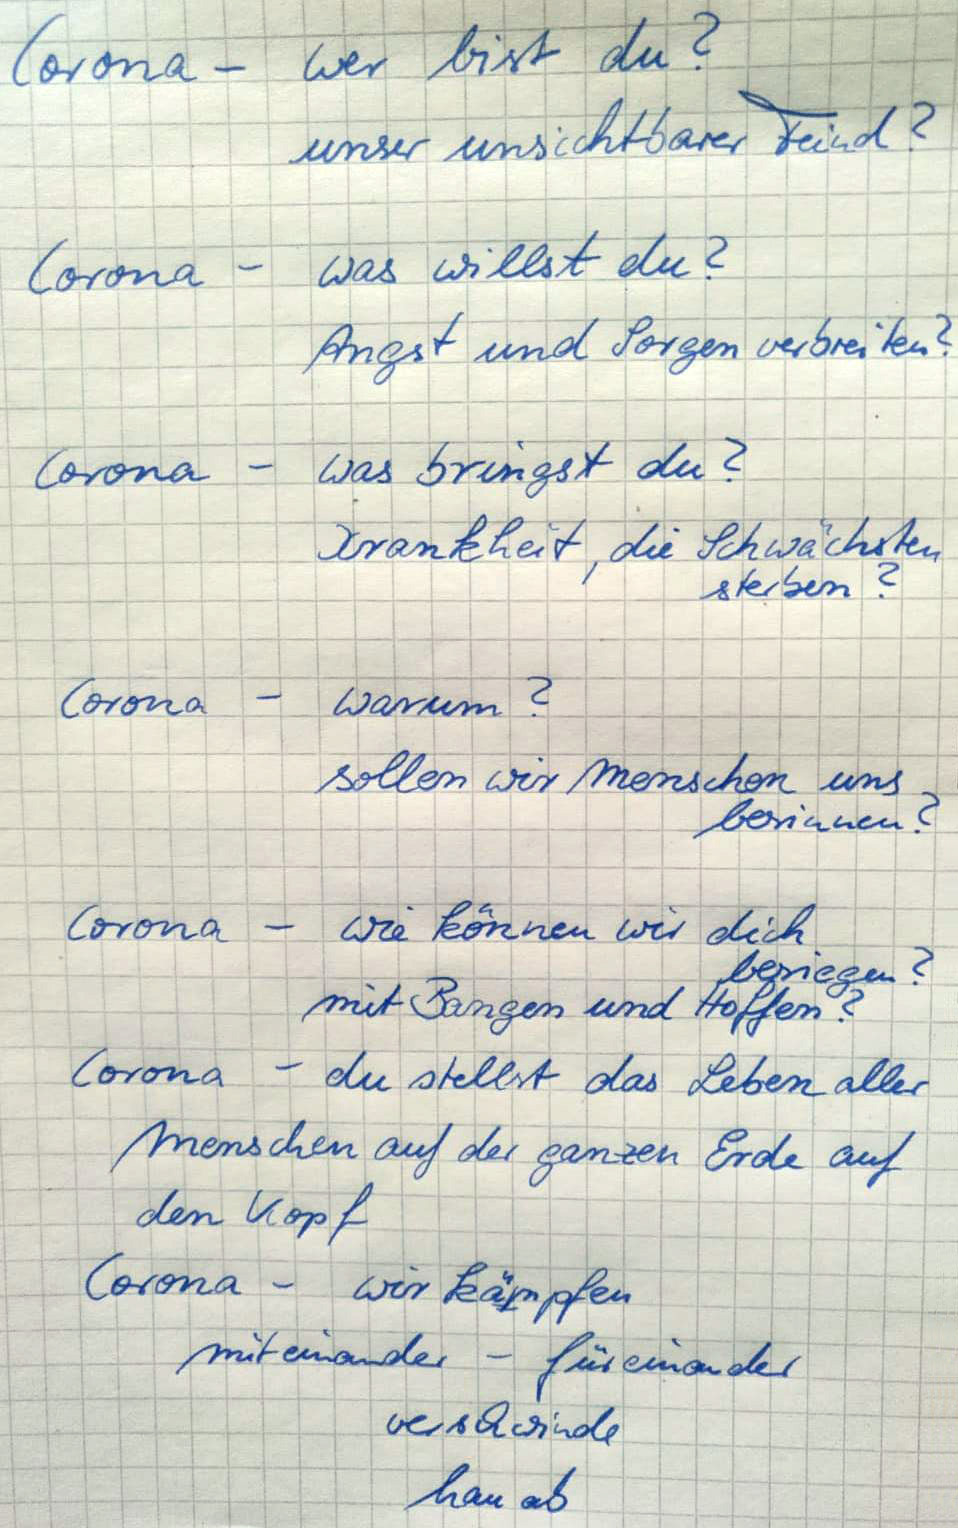 Corona – wer bist du?
unser unsichtbarer Feind?
Corona – was willst du?
Angst und Sorgen verbreiten?
Corona – was bringst du?
Krankheit, die Schwächsten
sterben?
Corona – warum?
sollen wir Menschen uns
besinnen?
Corona – wie können wir dich
besiegen?
mit Bangen und Hoffen?
Corona – du stellst das Leben aller
Menschen auf der ganzen Erde auf
den Kopf
Corona – wir kämpfen
miteinander – füreinander
verschwinde
hau ab